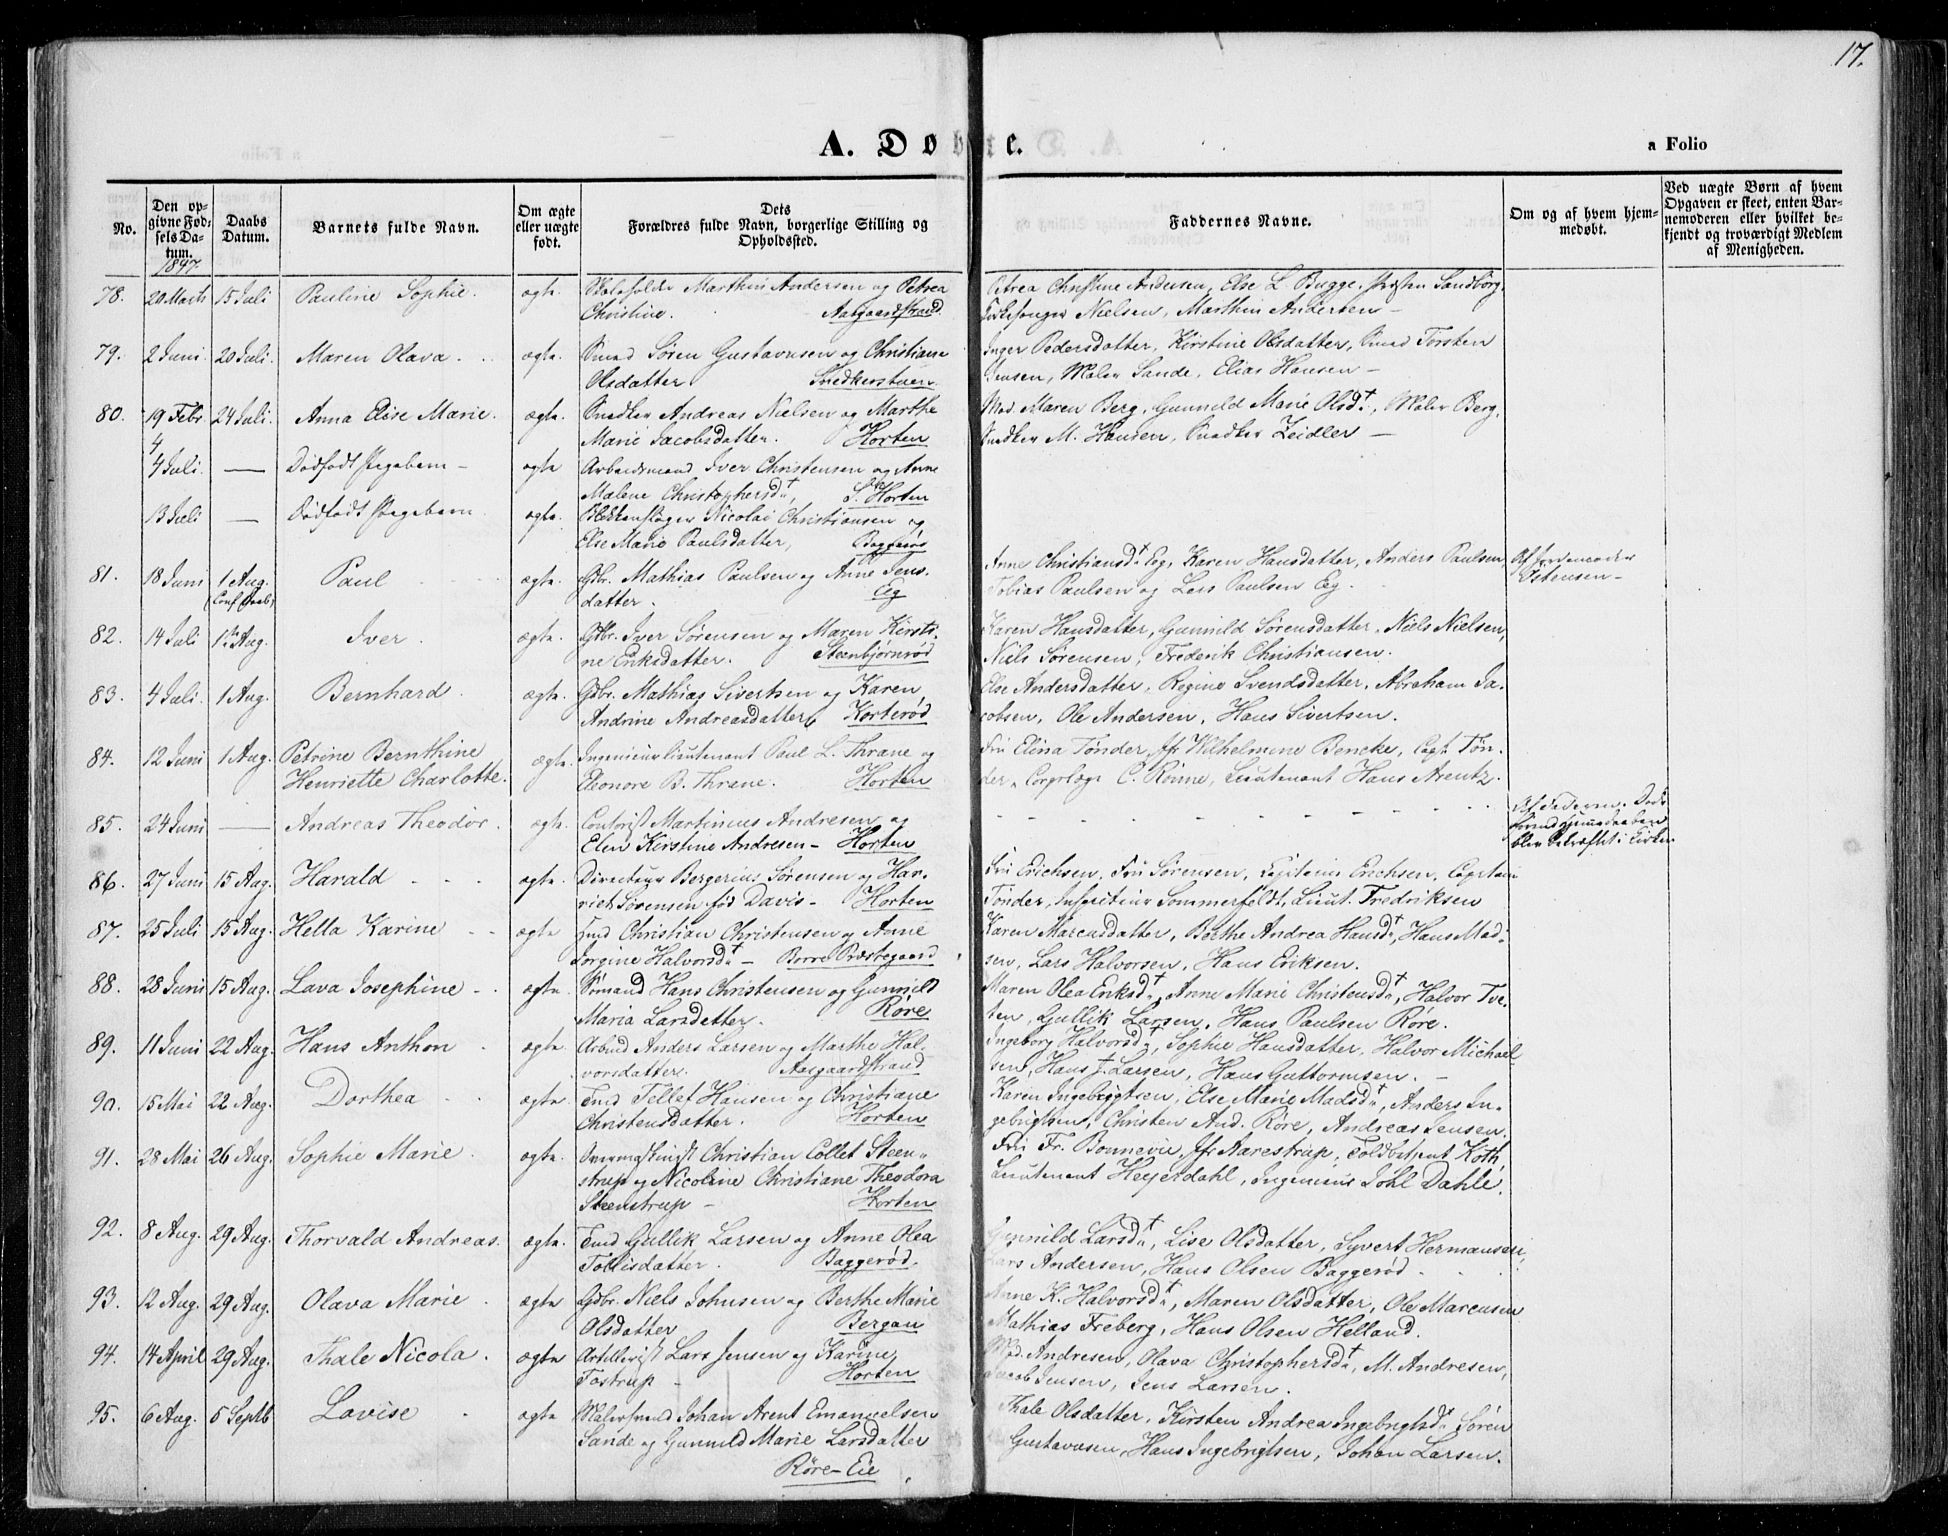 17.
A. Døbte.
a Folio
No.
Den op-
givne Fød-
sels Da-
tum.
1847.
Daabs
Datum.
Barnets fulde Navn.
Om ægte
eller uægte
født.
Dets
Forældres fulde Navn, borgerlige Stilling og
Opholdssted.
Faddernes Navne.
Om og af hvem hjem-
medøbt.
Ved uægte Børn af hvem
Opgaven er skeet, enten Bar-
nemoderen eller hvilket be-
kjendt og troværdigt Medlem
af Menigheden.
78. 20 Marts 15 Juli Pauline Sophie. ægte Marthin Andersen og Petrea
Christine. Aasgaardstrand
Petrea Christine Andersen, Else L. Bugge, Sandborg,
Kirkesanger Nielsen, Marthin Andersen -
79. 2 Juni 20 Juli. Maren Olava. ægte. Smed Søren Gustavusen og Christiane
Olsdatter Snedkerstuen.
Inger Pedersdatter, Kirstine Olsdatter, Smed Torsten
Jensen, Maler Sande, Elias Hansen -
80. 19 Febr. 24 Juli. Anna Elise Marie. ægte. Snedker Andreas Nielsen og Marthe
Marie Jacobsdatter. Horten
Mad. Maren Berg, Gunnild Marie Olsd., Maler Berg,
Snedker M. Hansen, Snedker Zeidler -
4 Juli. — Dødfødt Pigebarn - ægte Arbeidsmand Iver Christensen og Anne
Malene Christophersd., S. Horten
13 Juli — Dødfødt Pigebarn. ægte. Blikkenslager Nicolai Christiansen og
Else Marie Paulsdatter, Baggerød
81. 18 Juni 1 Aug. Paul ægte. Gbr. Mathias Paulsen og Anne Jens-
(Conf. Daab) datter. Eeg
Anne Christiansd. Eeg, Karen Hansdatter, Anders Paulsen,
Tobias Paulsen og Lars Paulsen Eeg.
Af Jordemoder
Istensen -
82. 14 Juli 1ste Aug. Iver. ægte. Gbr. Iver Sørensen og Maren Kirsti-
ne Eriksdatter. Steenbjørnrød
Karen Hansdatter, Gunnild Sørensdatter, Niels Nielsen,
Niels Sørensen, Frederik Christiansen.
83. 4 Juli. 1 Aug. Bernhard. ægte. Gbr. Mathias Sivertsen og Karen
Andrine Andreasdatter, Korterød
Else Andersdatter, Regine Svendsdatter, Abraham Ja-
cobsen, Ole Andersen, Hans Sivertsen.
84. 12 Juni 1 Aug. Petrine Bernthine
Henriette Charlotte. ægte. Ingenieurlieutenant Paul L. Thrane og
Eleonore B. Thrane. Horten
Fru Elina Tønder, Jfr. Wilhelmine Bencke, Capt. Tøn-
der, Corpslæge C. Rønne, Lieutenant Hans Arentz.
85. 24 Juni — Andreas Theodor. ægte. Contorist Martinius Andresen og
Elen Kirstine Andresen - Horten
Af Faderen. Døde
forend Hjemmedaaben
blev bekræftet i Kirken
86. 27 Juni 15 Aug. Harald ægte. Directeur Bergerius Sørensen og Har-
riet Sørensen fød Davis - Horten
Fru Erichsen, Fru Sørensen, Capitain Erichsen, Capitain
Tønder, Sommerfeldt, Lieut. Fredriksen
87. 25 Juli 15 Aug. Hella Karine ægte Inds. Christian Christensen og Anne
Jorgine Halvorsd. - Borre Præstegaard
Karen Marcusdatter, Berthe Andrea Hansd., Hans Mad-
sen, Lars Halvorsen, Hans Eriksen.
88. 28 Juni 15 Aug. Lava Josephine - ægte Sømand Hans Christensen og Gunnild
Maria Larsdatter. Røre
Maren Olea Eriksd., Anne Marie Christensd., Halvor Tve-
ten, Gullik Larsen, Hans Paulsen Røre.
89. 11 Juni 22 Aug. Hans Anthon. ægte. Arbmd Anders Larsen og Marthe Hal-
vorsdatter. Aasgaardstrand
Ingeborg Halvorsd., Sophie Hansdatter, Halvor Michael-
sen, Hans J. Larsen, Hans Guttormsen. -
90. 15 Mai 22 Aug. Dorthea ægte Tmd Tellef Hansen og Christiane
Christensdatter. Horten
Karen Ingebrigtsen, Else Marie Madsd., Anders In-
gebrigtsen, Christen And. Røre, Andreas Jensen.
91. 28 Mai 26 Aug. Sophie Marie. ægte. Overmaskinist Christian Collet Steen-
strup og Nicoline Christiane Theodora
Steenstrup - Horten
Fru Fr. Bonnevie, Jfr Aarestrup, Toldbetjent Koth,
Lieutenant Heyerdahl, Ingenieur Johl Dahle.
92. 8 Aug. 29 Aug. Thorvald Andreas. ægte. Tmd Gullik Larsen og Anne Olea
Tollisdatter. Baggerød.
Gunnild Larsd., Lise Olsdatter, Syvert Hermansen,
Lars Andersen, Hans Olsen Baggerød.
93. 12 Aug. 29 Aug. Olava Marie. ægte Gbr. Niels Johnsen og Berthe Marie
Olsdatter Bergan
Anne K. Halvorsd., Maren Olsdatter, Ole Marcusen
Mathias Freberg, Hans Olsen Helland.
94. 14 April 29 Aug. Thale Nicola. ægte Artillerist Lars Jensen og Karine
Tostrup - Horten
Mad. Andresen, Olava Christophersd., M. Andresen,
Jacob Jensen, Jens Larsen.
95. 6 Aug. 5 Septb Lovise. ægte Malersvend Johan Arent Emanuelsen
Sande og Gunnild Marie Larsdatter
Røre-Eie
Thale Olsdatter, Kirsten Andrea Ingebrigtsd. Søren
Gustavusen, Hans Ingebrigtsen, Johan Larsen.